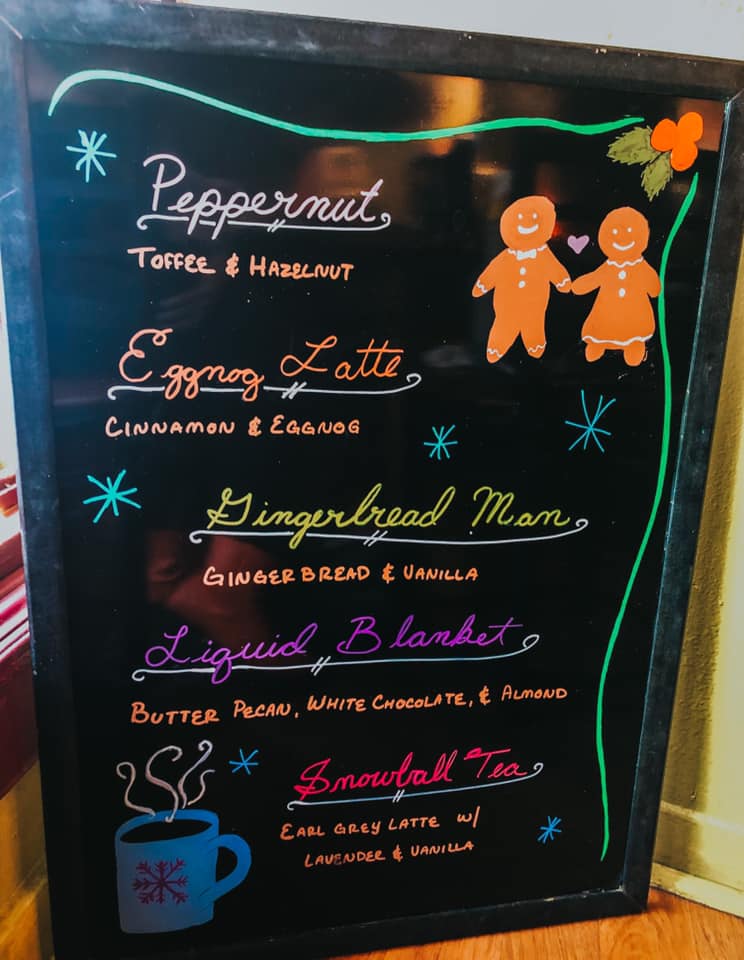 Peppernut
TOFFEE & HAZELNUT
Eggnog Latte
CINNAMON & EGGNOG
Gingerbread Man
GINGERBREAD & VANILLA
Liquid Blanket
BUTTER PECAN, WHITE CHOCOLATE, & ALMOND
Snowball Tea
EARL GREY LATTE W/
LAVENDER & VANILLA